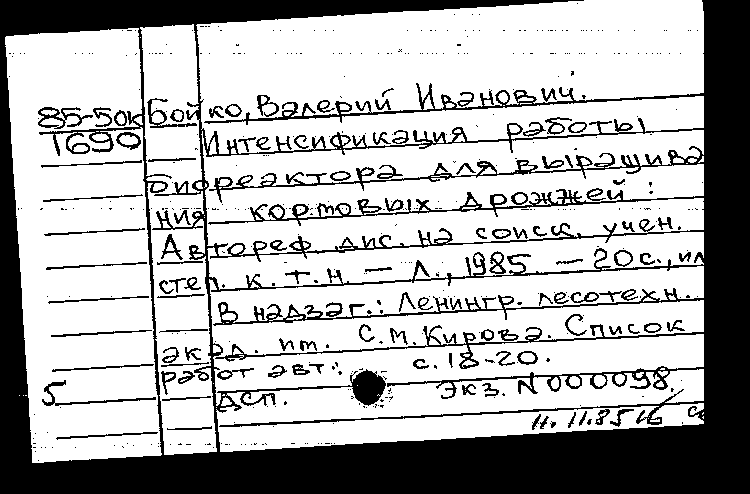 85-5ок Бойко, Валерий Иванович.
1690 Интенсификация работы
биореактора для выращива
ния кормовых дрожжей :
Автореф. дис. на соиск. учен.
степ. к. т. н. — Л., 1985. — 20 с., ил
В надзаг.: Ленингр. лесотехн.
акад. им. С.М. Кирова. Список
работ авт.: с. 18-20.
5 ДСП. Экз. N 000098.
11. 11.85